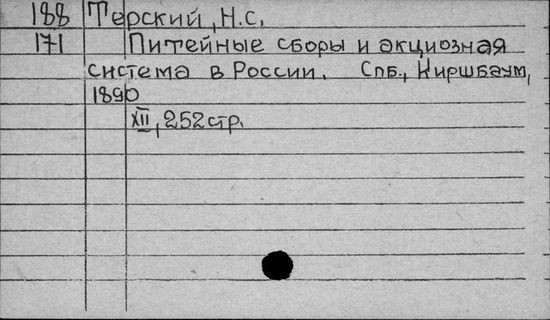 188 Терский, Н.С.
171 Питейные сборы и акциозная
система в России. Спб., Киршбаум,
1890
XII, 252 стр.